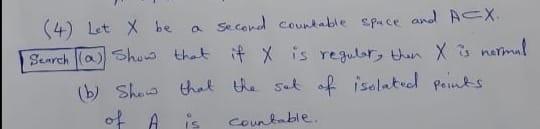 (4) Let X be a second countable space and A⊂X.
Search (a) Show that if X is regular, then X is normal
(b) Show that the set of isolated points
of A is countable.